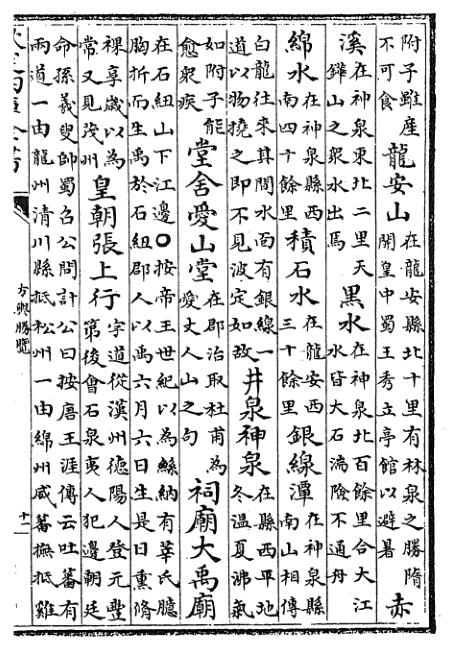 附子雖産不可食龍安山在龍安縣北十里有林泉之勝隋開皇中蜀王秀立亭館以避暑赤
溪在神泉東北二里天鏵山之衆水出焉黒水在神泉北百餘里合大江水皆大石湍險不通舟
綿水在神泉縣西南四十餘里積石水在龍安西三十餘里銀線潭在神泉縣南山相傳
白龍往來其間水面有銀線一道以物撓之即不見波定如故井泉神泉在縣西平地冬温夏沸氣
如附子能愈衆疾堂舍愛山堂在郡治取杜甫為愛丈人山之句祠廟大禹廟
在石紐山下江邊○按帝王世紀以為鯀納有莘氏臆胸折而生禹於石紐郡人以禹六月六日生是日熏脩
祼享歲以為常又見茂州皇朝張上行字道從漢州德陽人登元豐第後會石泉夷人犯邊朝廷
命孫羲叟帥蜀召公問計公曰按唐王涯傳云吐蕃有兩道一由龍州清川縣抵松州一由綿州威蕃撫抵雞
方輿勝覽